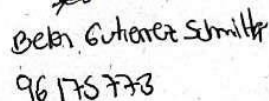 Belen Gutierrez Schmilter
96175773